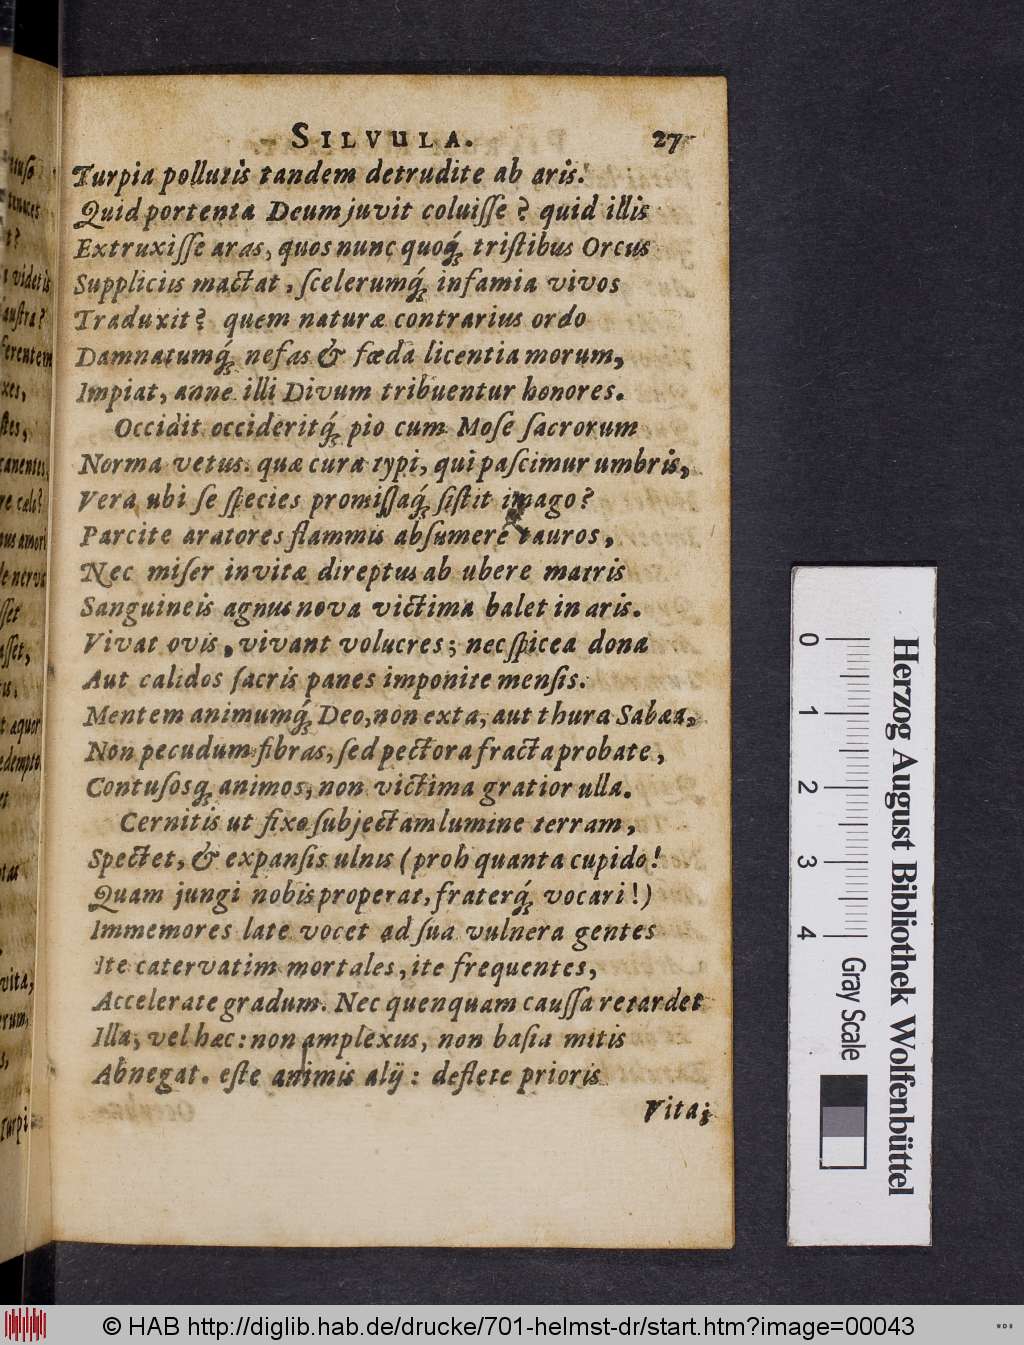 SILVULA. 27
Turpia pollutis tandem detrudite ab aris.
Quid portenta Deum juvit coluiſſe? quid illis
Extruxiſſe aras, quos nunc quoq́; triſtibus Orcus
Suppliciis mactat, ſcelerumq́; infamia vivos
Traduxit? quem naturæ contrarius ordo
Damnatumq́; nefas & fœda licentia morum,
Impiat, anne illi Divum tribuentur honores.
Occidit occideritq́; pio cum Moſe ſacrorum
Norma vetus. quæ cura typi, qui paſcimur umbris,
Vera ubi ſe ſpecies promiſſaq́; ſiſtit imago?
Parcite aratores flammis abſumere tauros,
Nec miſer invitæ direptus ab ubere matris
Sanguineis agnus nova victima balet in aris.
Vivat ovis, vivant volucres; nec ſpicea dona
Aut calidos ſacris panes imponite menſis.
Mentem animumq́; Deo, non exta, aut thura Sabæa,
Non pecudum fibras, ſed pectora fracta probate,
Contuſosq; animos, non victima gratior ulla.
Cernitis ut fixo ſubjectam lumine terram,
Spectet, & expanſis ulnis (proh quanta cupido!
Quam jungi nobis properat, fraterq́; vocari!)
Immemores late vocet ad ſua vulnera gentes
Ite catervatim mortales, ite frequentes,
Accelerate gradum. Nec quenquam cauſſa retardet
Illa, vel hæc: non amplexus, non baſia mitis
Abnegat. eſte animis alij: deflete prioris
Vitaj
tenaces
t?
videtis
auſtra?
ferentem
xes,
ſtes,
canentes,
re cælo?
amori
ſſet
aſſet,
t aquor
et
vita,
rum,
s,
Turpi
0 1 2 3 4
Gray Scale
Herzog August Bibliothek Wolfenbüttel
© HAB http://diglib.hab.de/drucke/701-helmst-dr/start.htm?image=00043